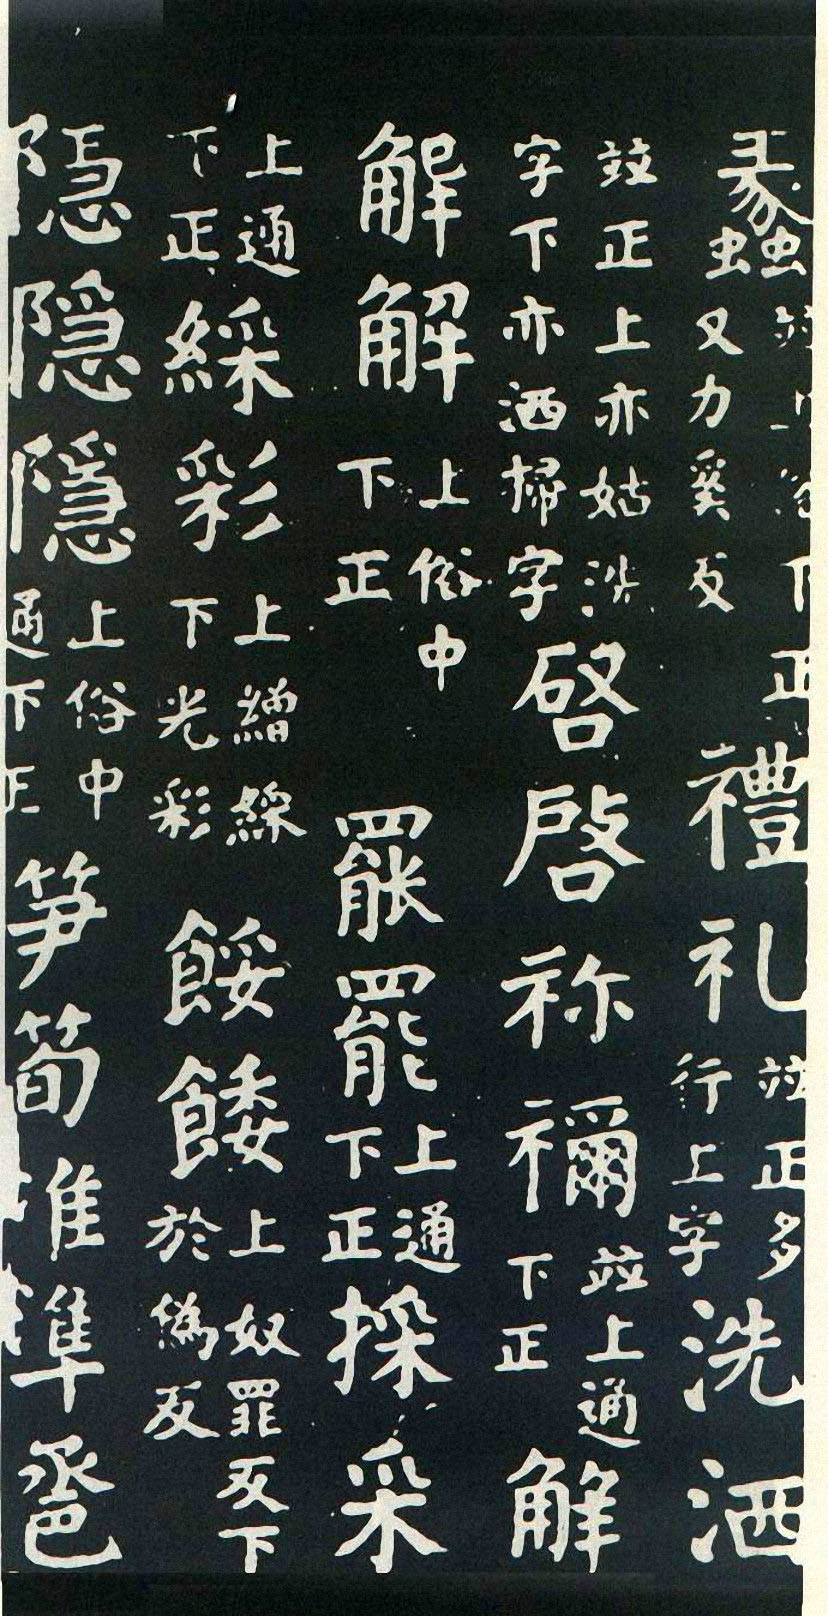 蠡竝上俗下正又力奚反禮礼竝正多行上字洗洒
竝正上亦姑洗字下亦洒掃字啓啓祢禰竝上通下正解
解解上俗中下正罷罷上通下正採采
上通下正綵彩上繒綵下光彩餒餧上奴罪反下於僞反
隠隐隱上俗中通下正笋筍准準